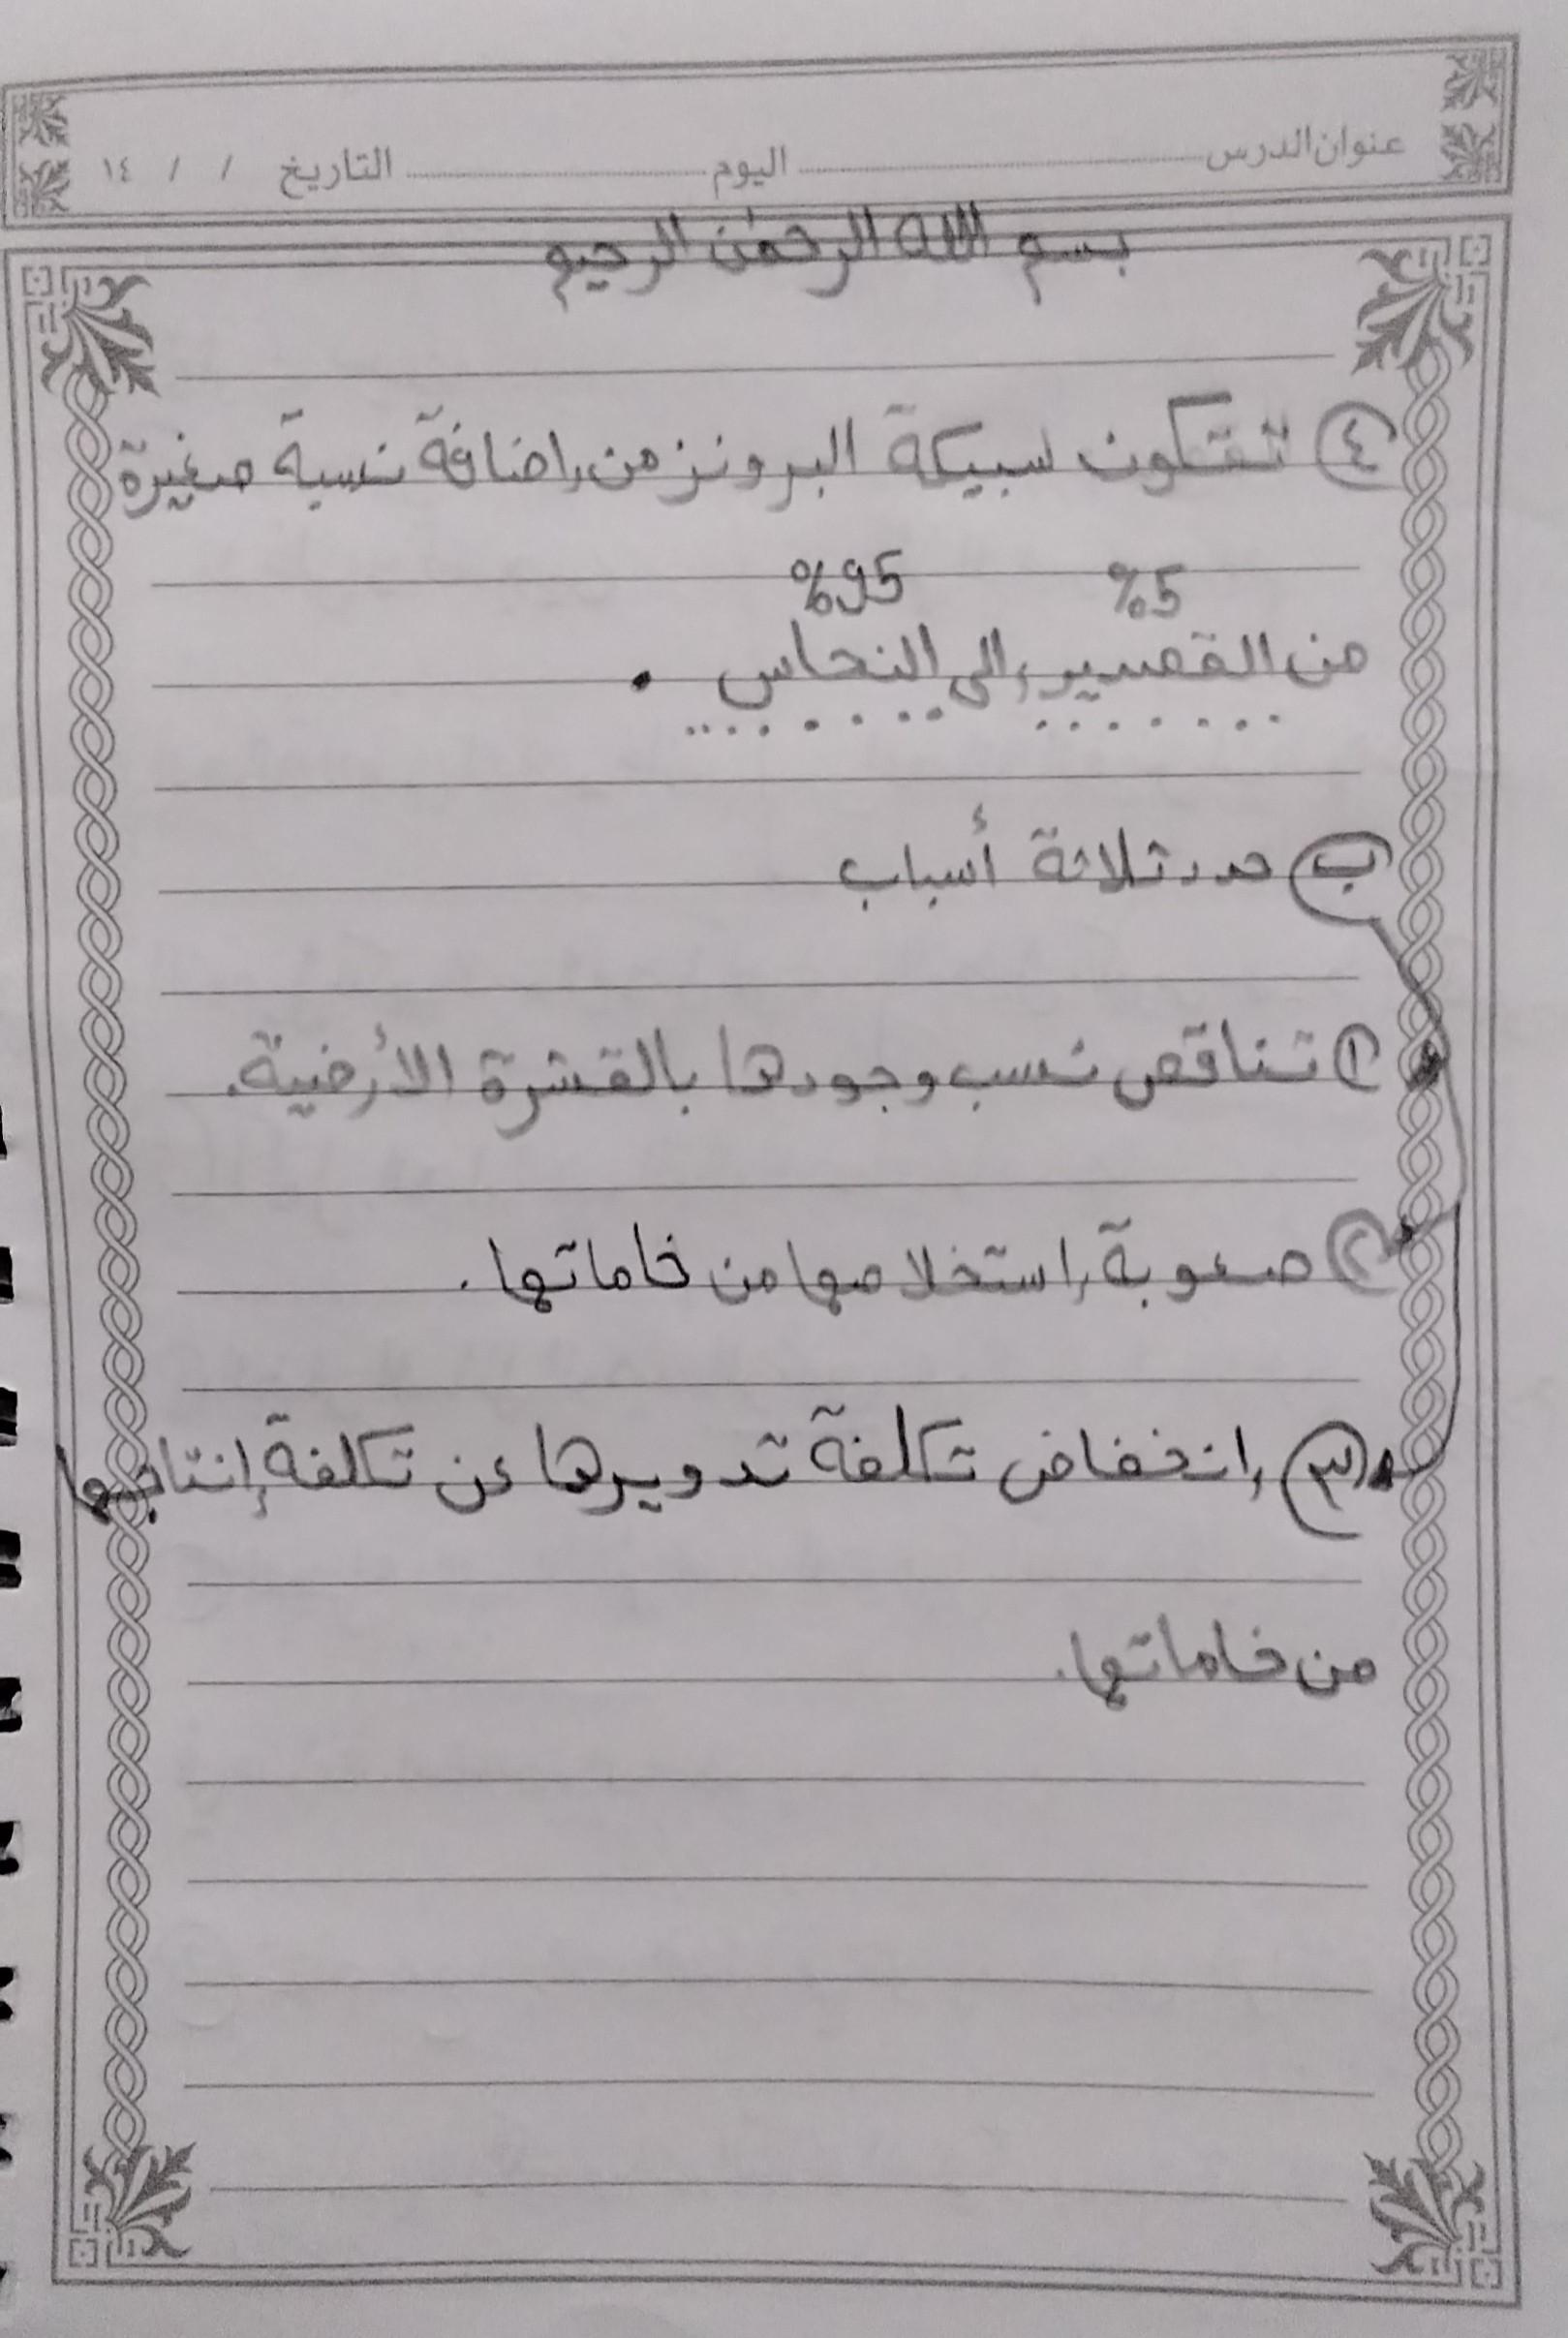 عنوان الدرس اليوم التاريخ / / ١٤
بسم الله الرحمن الرحيم
٤ تتكون سبيكة البرونز من إضافة نسبة صغيرة
%5 %95
من القصدير إلى النحاس .
ب حدد ثلاثة أسباب
١ تناقص نسب وجودها بالقشرة الأرضية.
٢ صعوبة إستخلاصها من خاماتها.
٣ إنخفاض تكلفة تدويرها عن تكلفة إنتاجها
من خاماتها.